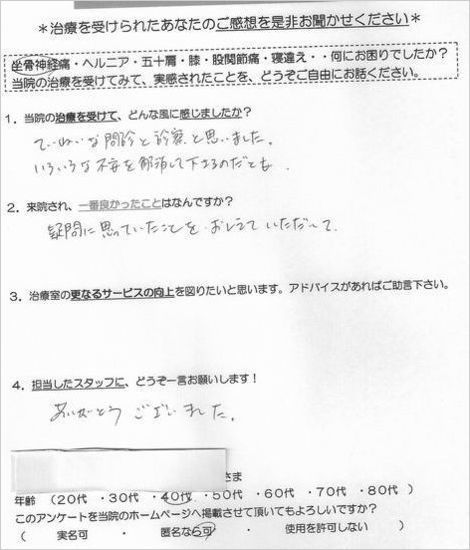 ＊治療を受けられたあなたのご感想を是非お聞かせください＊
坐骨神経痛・ヘルニア・五十肩・膝・股関節痛・寝違え・・何にお困りでしたか？
当院の治療を受けてみて、実感されたことを、どうぞご自由にお話ください。
1．当院の治療を受けて、どんな風に感じましたか？
ていねいな問診と診察と思いました。
いろいろな不安を解消して下さるのだとも.
2．来院され、一番良かったことはなんですか？
疑問に思っていたことを、おしえていただいて.
3．治療室の更なるサービスの向上を図りたいと思います。アドバイスがあればご助言下さい。
4．担当したスタッフに、どうぞ一言お願いします！
ありがとうございました。
さま
年齢 （20代 ・30代 ・40代 ・50代 ・60代 ・70代 ・80代 ）
このアンケートを当院のホームページへ掲載させて頂いてもよろしいですか？
（ 実名可 ・ 匿名なら可 ・ 使用を許可しない ）